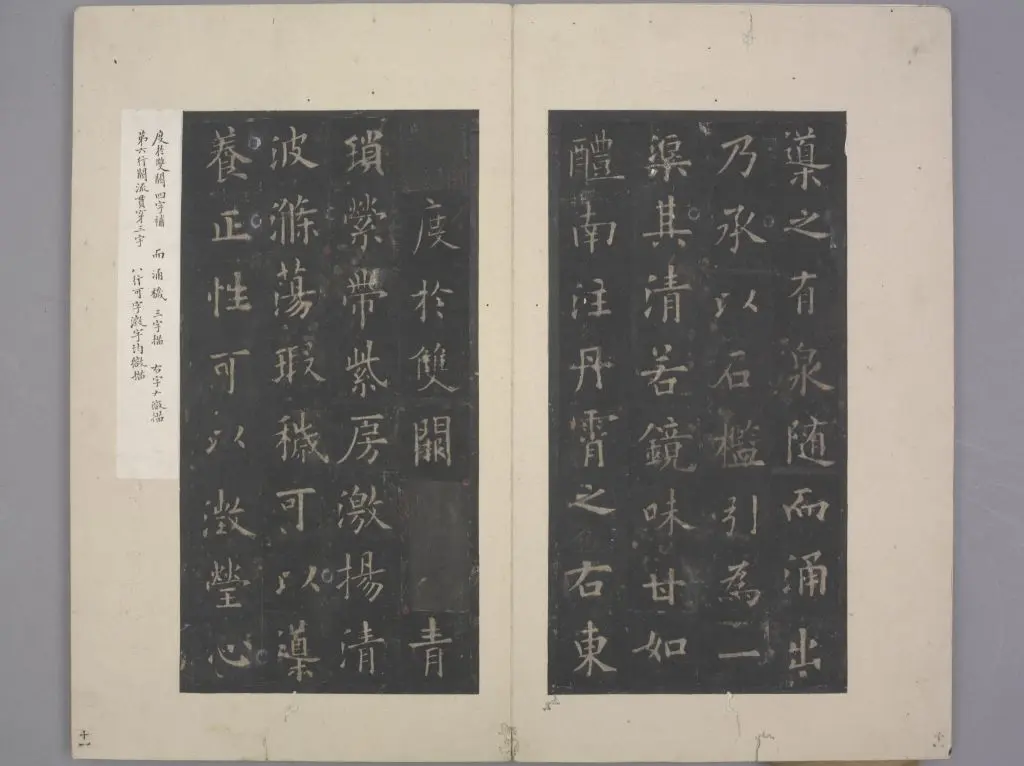 導之有泉随而涌出
乃承以石檻引為一
渠其清若鏡味甘如
醴南注丹霄之右東
度於雙闕 青
瑣縈帶紫房激揚清
波滌蕩瑕穢可以導
養正性可以澂瑩心
度於雙闕四字補 而涌穢三字描 右字ナ微描
第六行闕流貫穿三字 八行可字澂字均微描
十一